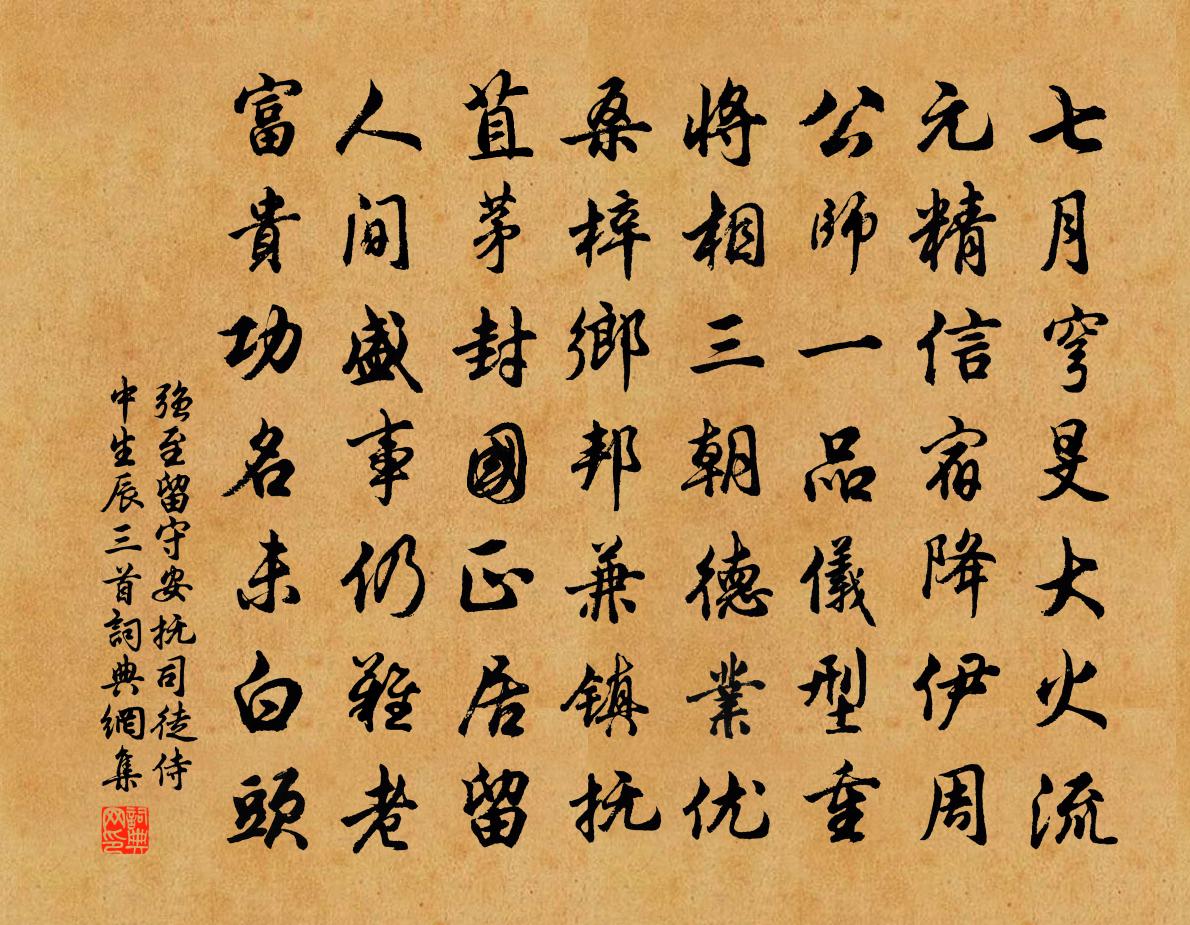 七月穹旻大火流
元精信宿降伊周
公師一品儀型重
將相三朝德業优
桑梓鄉邦兼鎮抚
苴茅封國正居留
人間盛事仍難老
富貴功名未白頭
强至留守安抚司徒侍
中生辰三首詞典網集
詞典网印